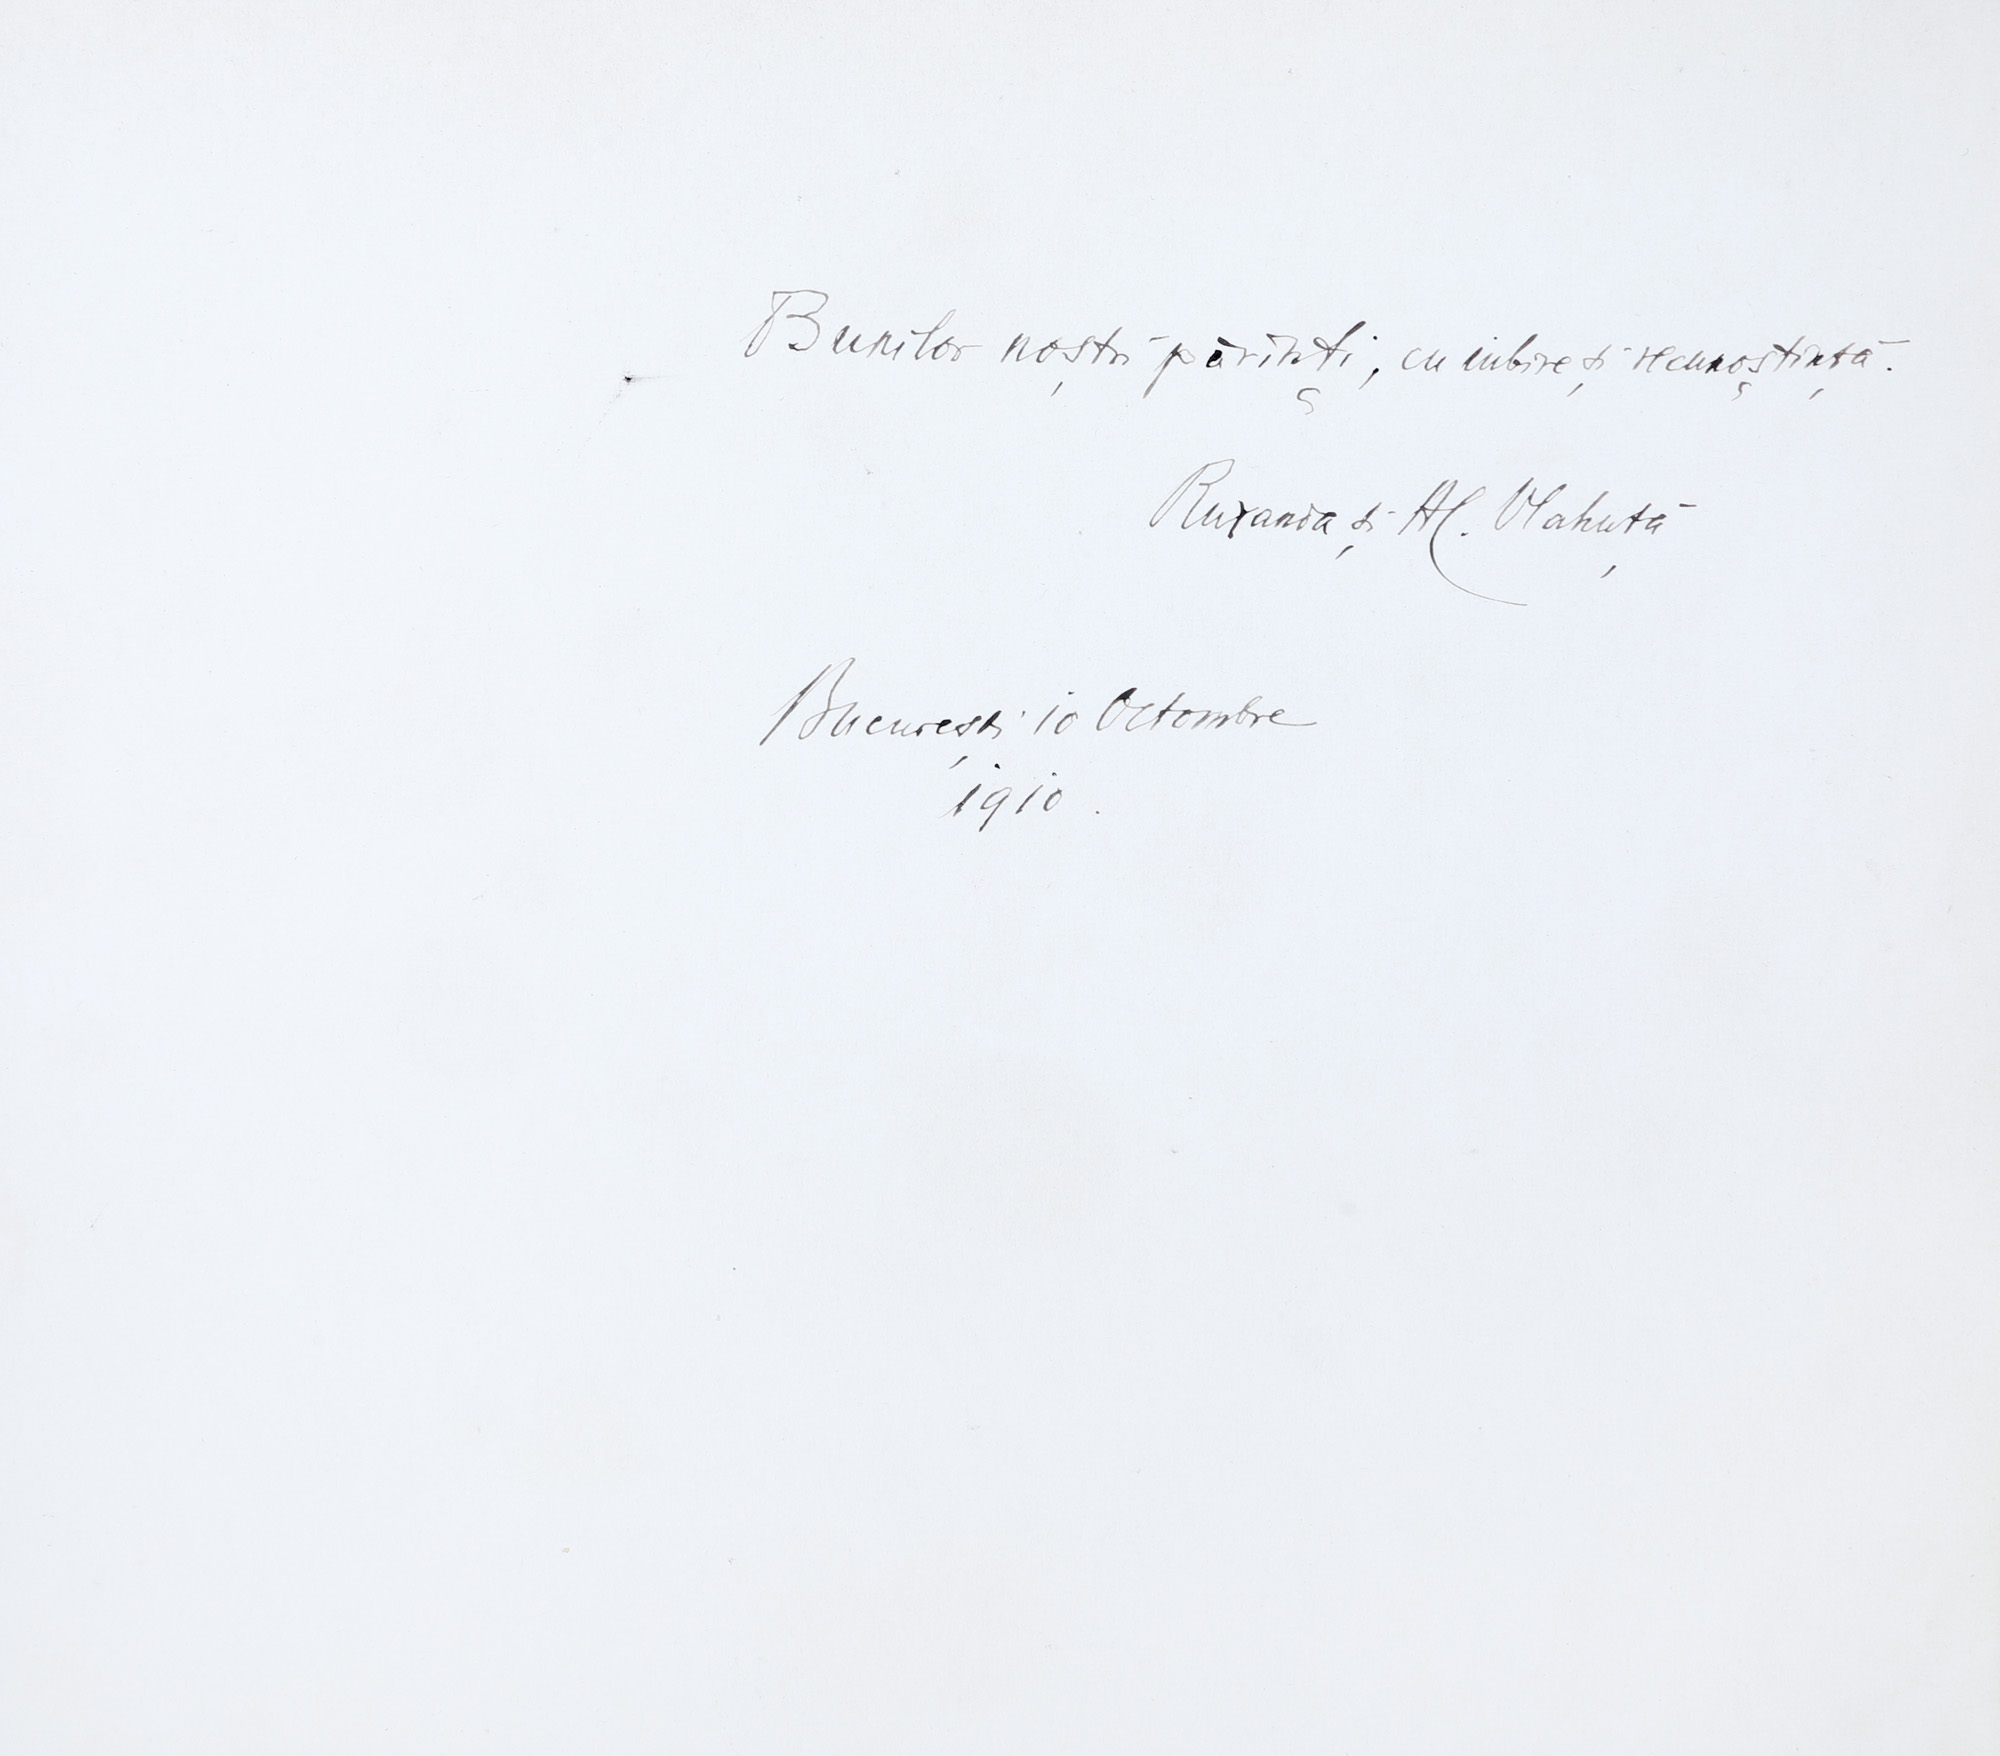 Bunilor noștri părinți, cu iubire și recunoștință.
Ruxanda și Al. Vlahuță
București 10 Octombre
1910.